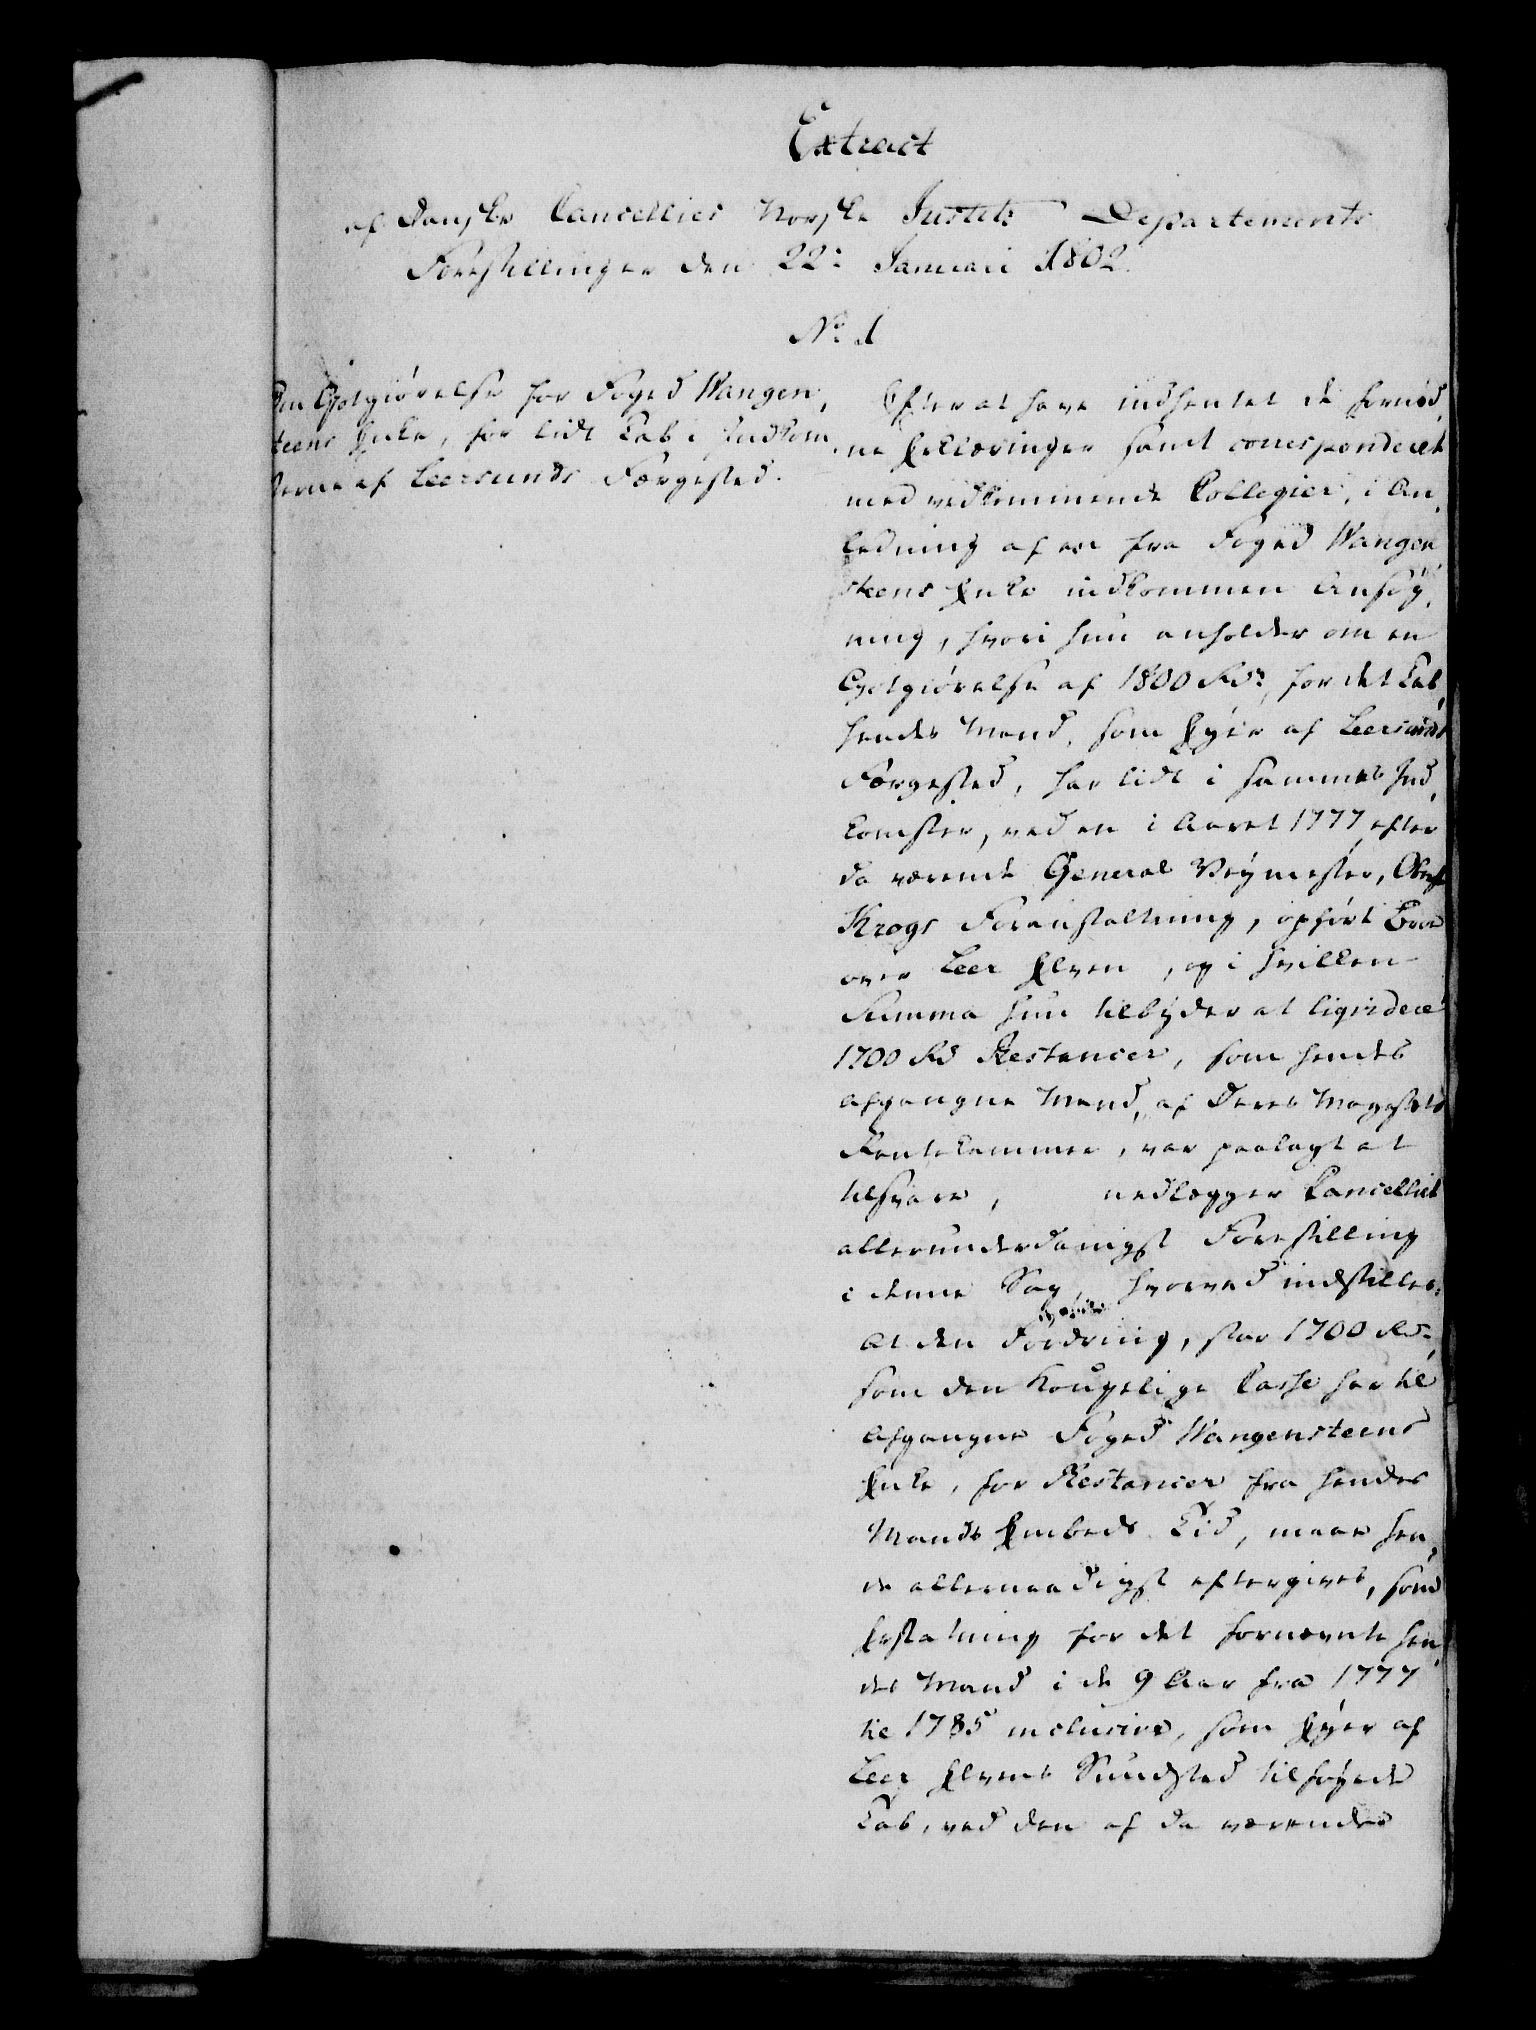 Extract
af Danske Cancellies Norske Justits Departements
Forestillinger den 22: Januari 1802.
No 1
Om Godtgiørelse for Foged Wangen,
steens Enke, for lidt Tab i Indkom,
sterne af Leersunds Færgested.
Efter at have indhentet de fornød,
ne Erklæringer samt correspanderet
med vedkommende Collegier, i An,
ledning af en fra Foged Wangen
steens Enke indkommen Ansøg,
ning, hvori hun anholder om en
Godtgiørelse af 1800 Rdr, for det Tab,
hendes Mand, som Eyer af Leersunds
Færgested, har lidt i sammes Ind,
komster, ved en i Aaret 1777 efter
da værende General Veymester, Oberst
Krogs Foranstaltning, opført Broe
over Leer Elven, og i hvilken
Summa hun tilbyder at liqvidere
1700 Rd Restancer, som hendes
afgangne Mand, af Deres Majestets
Rentekammer, var paalagt at
tilsvare, nedlægger Cancelliet
allerunderdanigst Forestilling
i denne Sag, hvorved indstilles:
At den Fordring, stor 1700 Rdr,
som den Kongelige Casse har til
afgangne Foged Wangensteens
Enke, for Restancer fra hendes
Mands Embeds Tid, maae hen,
de allernaadigst eftergives, som
Erstatning for det fornævnte hen,
des Mand i de 9 Aar fra 1777
til 1785 inclusive, som Eyer af
Leer Elvens Sundsted tilføyede
Tab, ved den af da værende